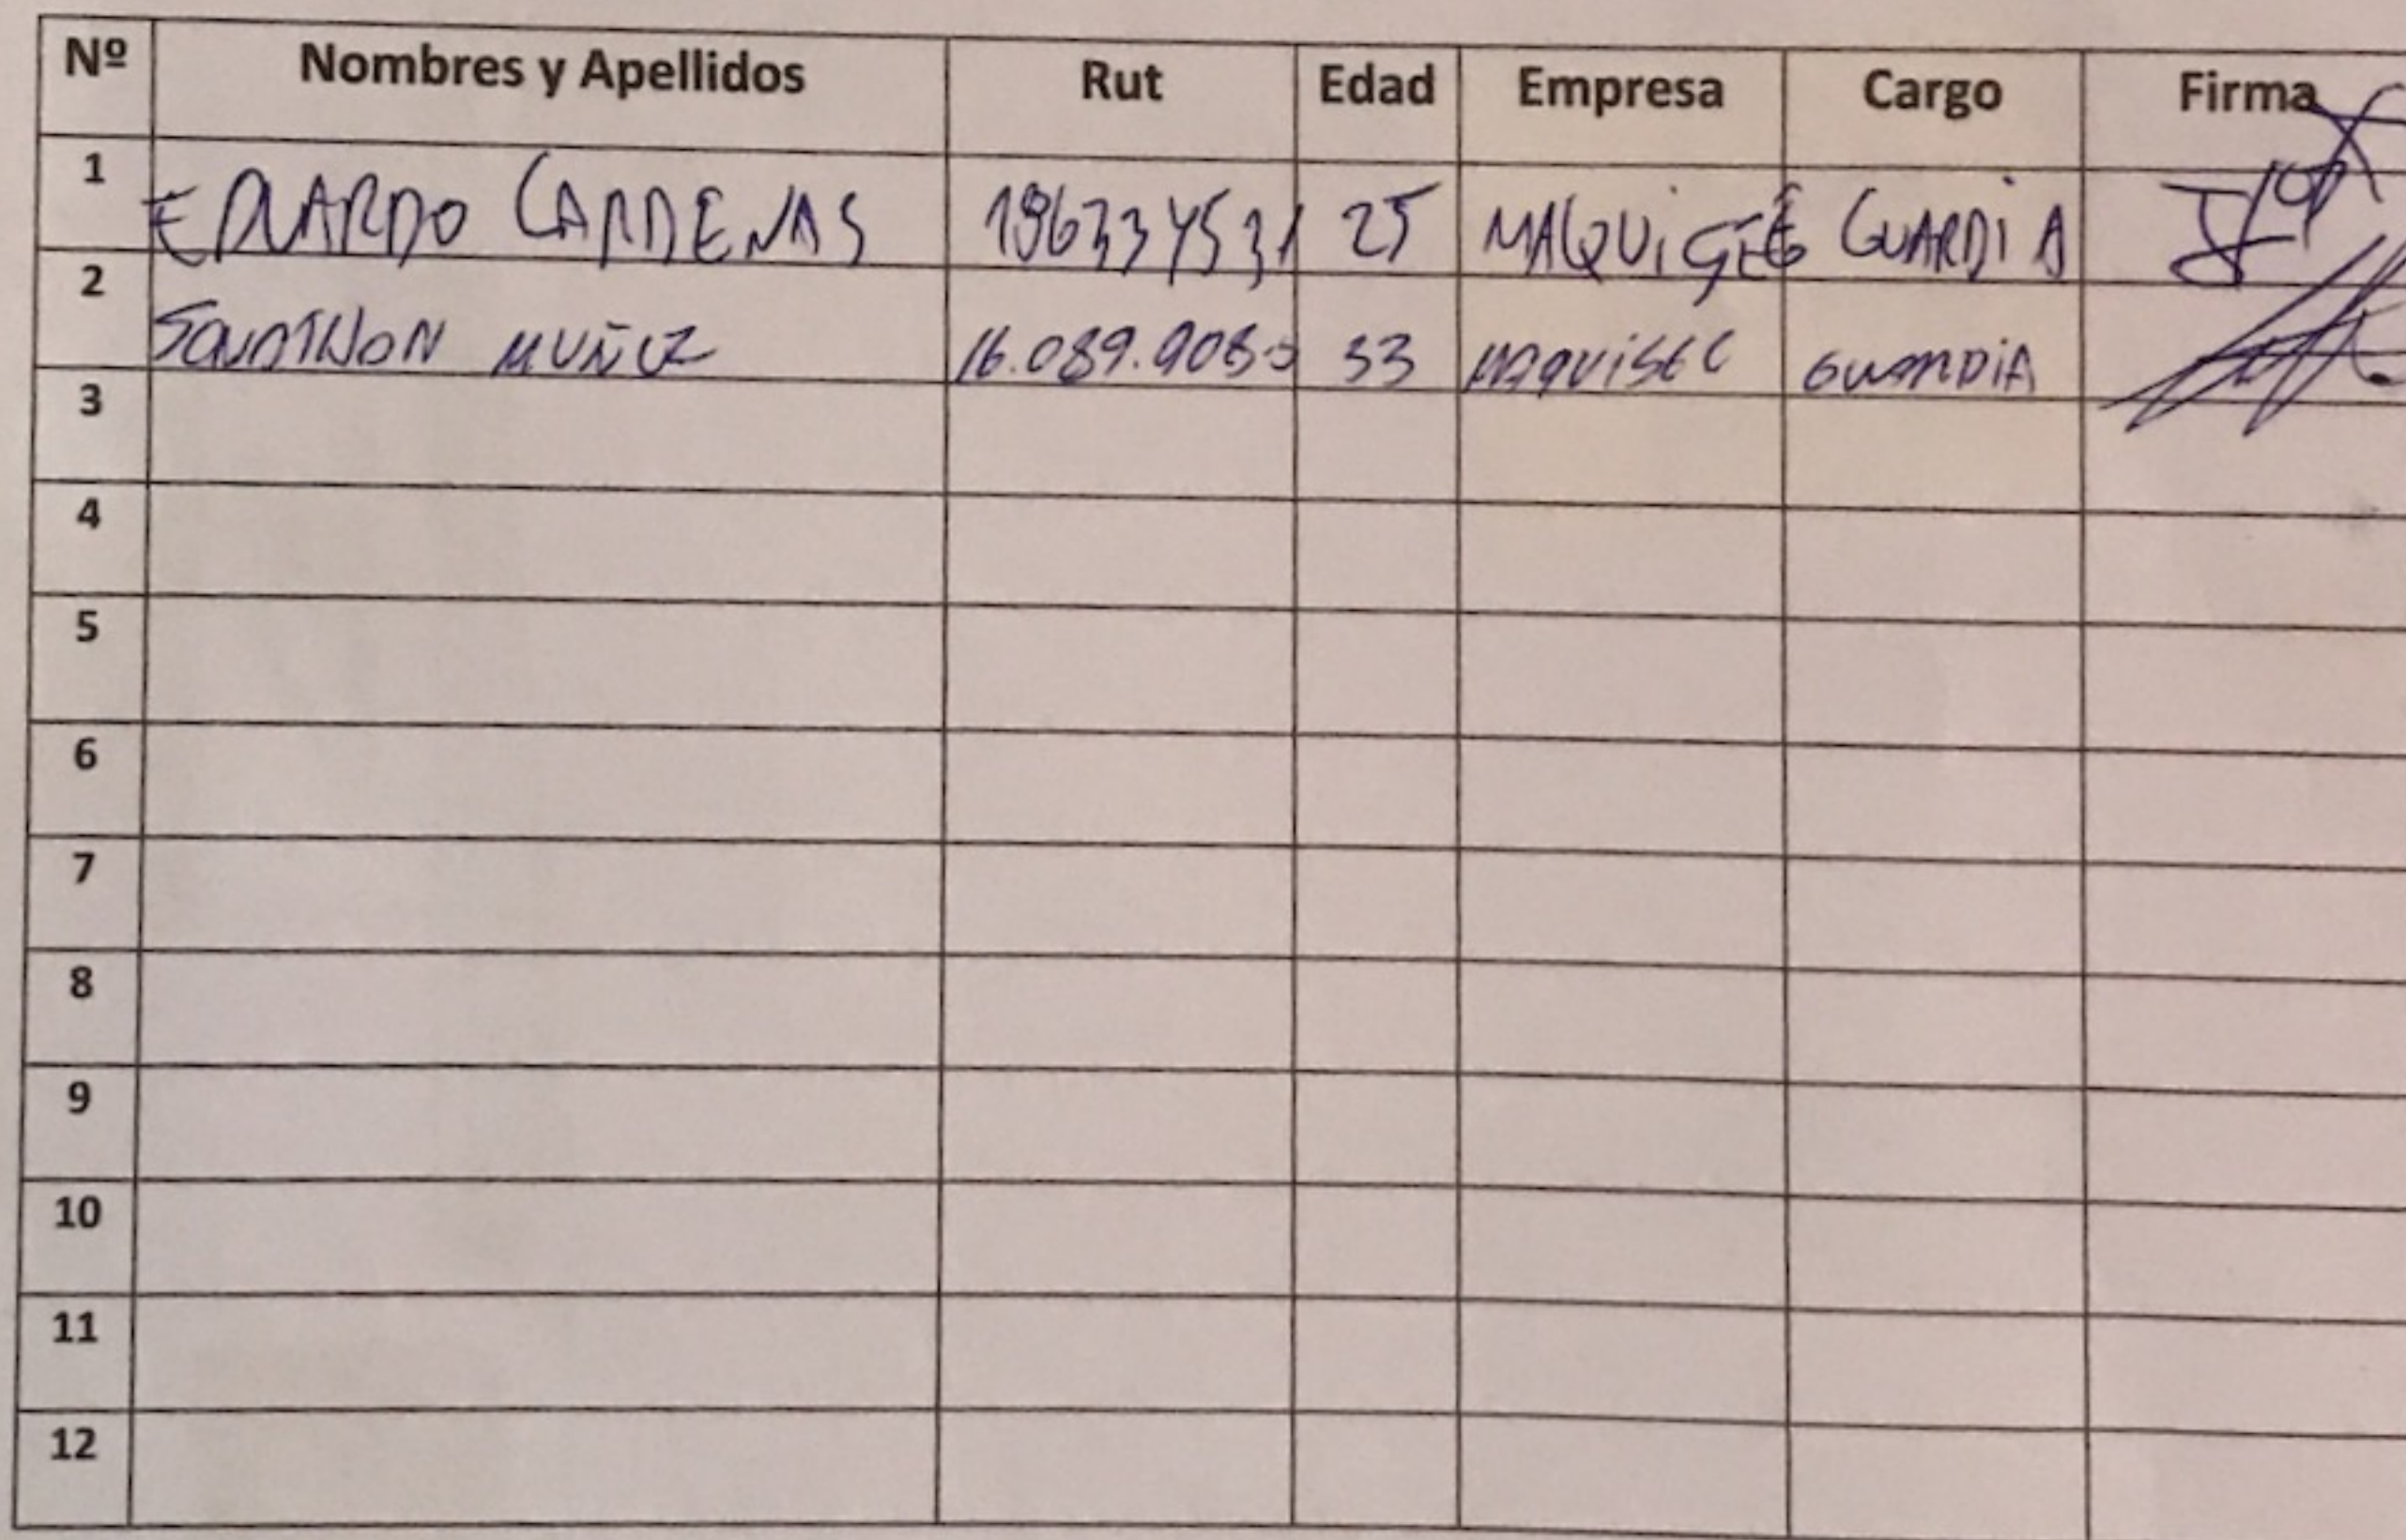 Nº Nombres y Apellidos Rut Edad Empresa Cargo Firma
1 EDUARDO CARDENAS 196334531 25 MAQUISEG GUARDIA
2 JONATHON MUÑOZ 16.089.908-5 33 MAQUISEC GUARDIA
3
4
5
6
7
8
9
10
11
12